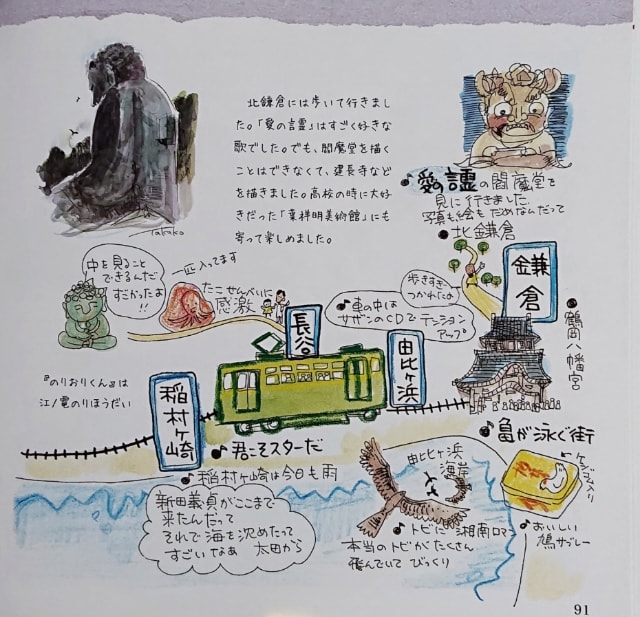 北鎌倉には歩いて行きまし
た。「愛の言霊」はすごく好きな
歌でした。でも、閻魔堂を描く
ことはできなくて、建長寺など
を描きました。高校の時に大好
きだった「葉祥明美術館」にも
寄って楽しめました。
Takako
♪愛の言霊の閻魔堂を
見に行きました
写真も絵もだめなんだって
北鎌倉
鎌倉
歩きすぎて
つかれたよ
鶴岡八幡宮
中を見ること
できるんだ
すごかったよ
!!
一匹入ってます
たこせんべいに
感激
長谷
♪車の中は
サザンのCDでテンション
アップ
由比ヶ浜
『のりおりくん』は
江ノ電のりほうだい
稲村ヶ崎
♪君こそスターだ
♪亀が泳ぐ街
♪稲村ケ崎は今日も雨
新田義貞がここまで
来たんだって
それで海を沈めたって
すごいなあ 太田から
由比ヶ浜
海岸
♪トビに 湘南ロマ
本当のトビがたくさん
飛んでいて びっくり
♪おいしい
鳩サブレー
91